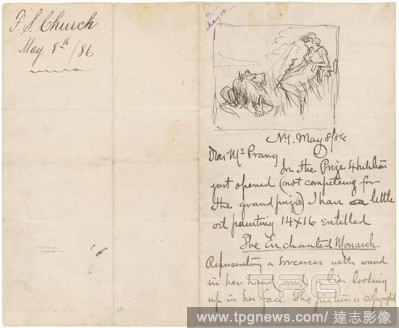 F. S. Church
May 8th / 86
May 10
N.Y. May 8/86
Dear Mr Prang
In the Prize Exhibition
just opened (not competing for
the grand prize) I have a little
oil painting 14x16 entitled
The Enchanted Monarch
Representing a sorceress with wand
in her hand and a lion looking
up in her face. The picture is copyright
TPG
www.tpgnews.com / 達志影像